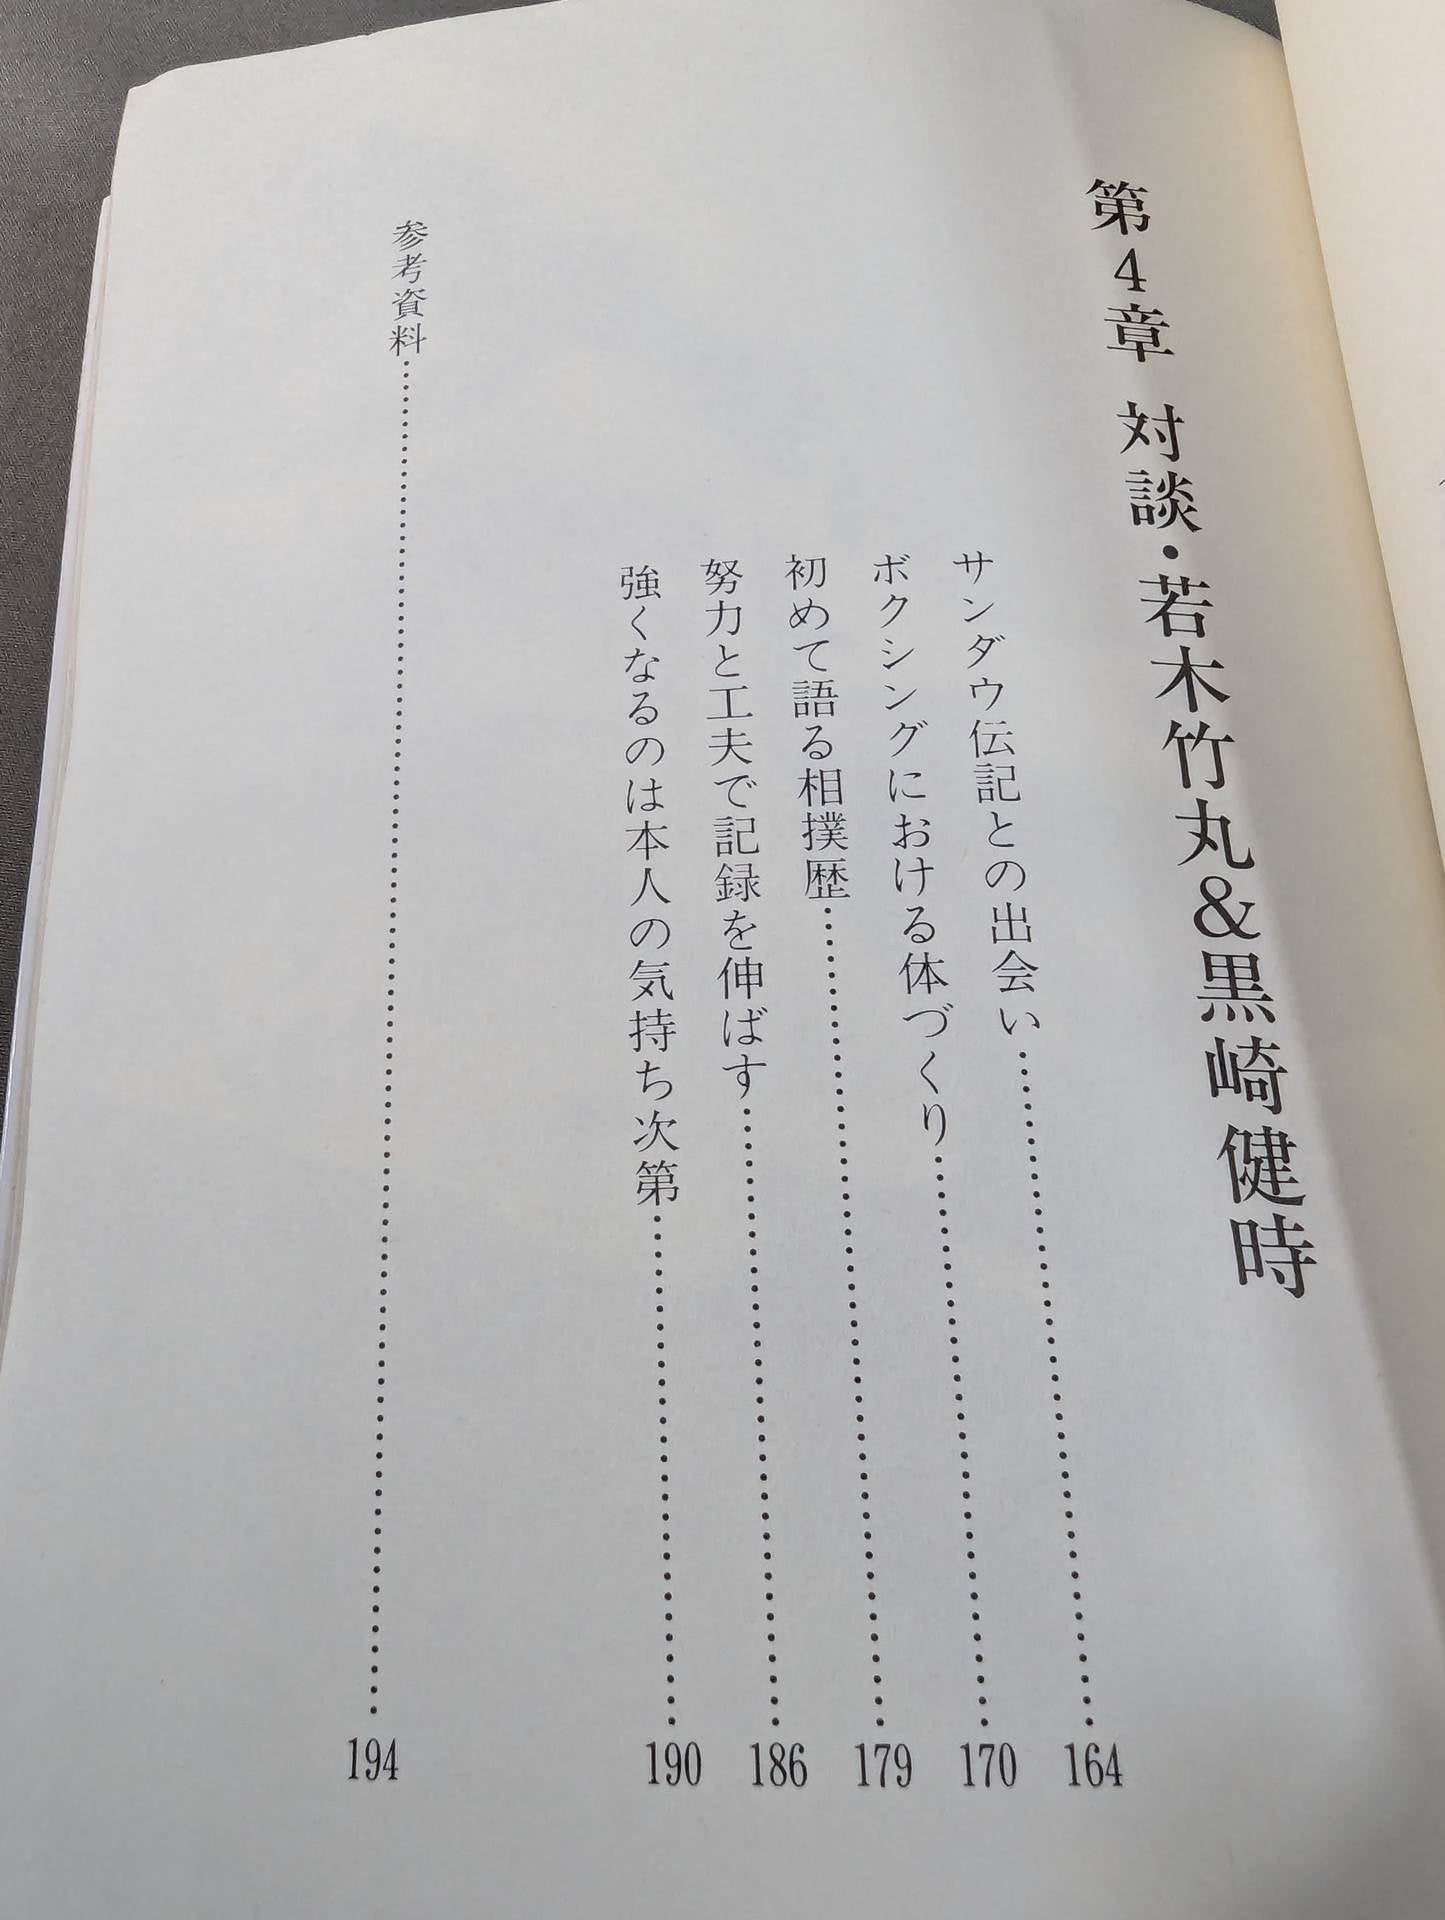 第4章 対談・若木竹丸&黒崎健時
サンダウ伝記との出会い……………………164
ボクシングにおける体づくり……………………170
初めて語る相撲歴……………………179
努力と工夫で記録を伸ばす……………………186
強くなるのは本人の気持ち次第……………………190
参考資料……………………194